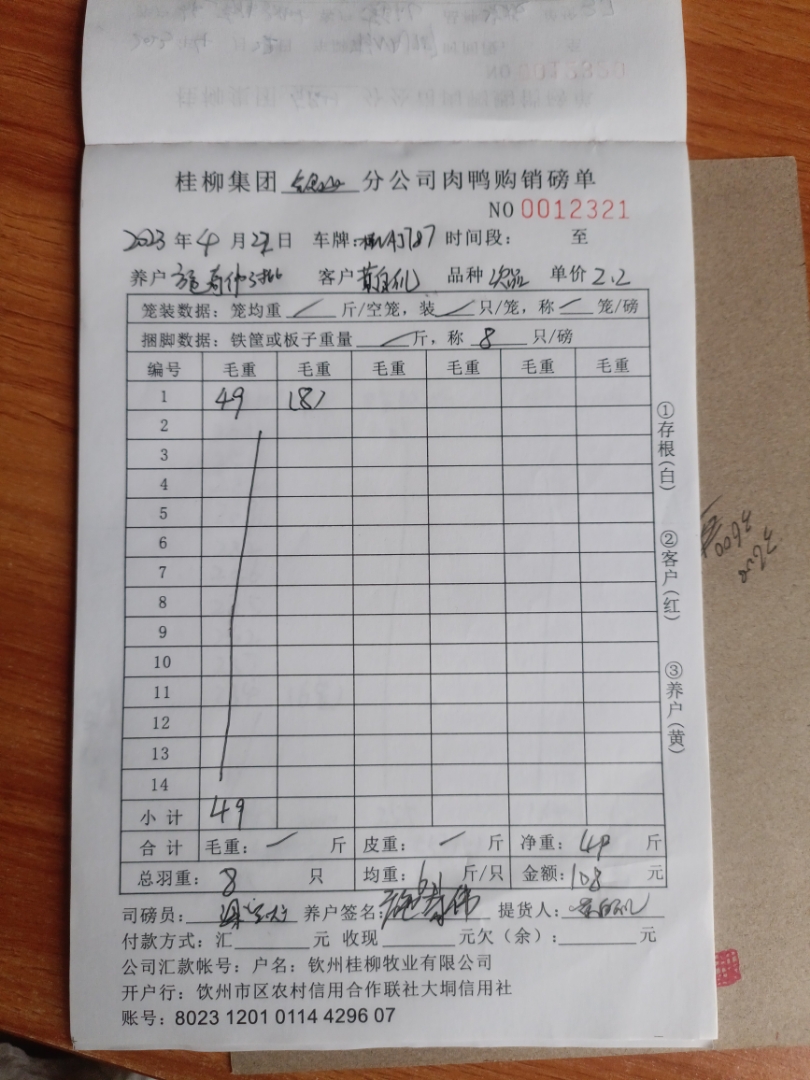 桂柳集团 分公司肉鸭购销磅单
NO 0012321
2023 年 4 月 22 日 车牌: 时间段: 至
养户 客户 品种 次品 单价 2.2
笼装数据: 笼均重 / 斤/空笼, 装 / 只/笼, 称 / 笼/磅
捆脚数据: 铁筐或板子重量 / 斤, 称 8 只/磅
编号 毛重 毛重 毛重 毛重 毛重 毛重
1 49 (8)
2
3
4
5
6
7
8
9
10
11
12
13
14
小计 49
合计 毛重: / 斤 皮重: / 斤 净重: 49 斤
总羽重: 8 只 均重: 6.1 斤/只 金额: 108 元
司磅员: 养户签名: 提货人:
付款方式: 汇 元 收现 元欠(余): 元
公司汇款帐号: 户名: 钦州桂柳牧业有限公司
开户行: 钦州市区农村信用合作联社大垌信用社
账号: 8023 1201 0114 4296 07
①存根(白)
②客户(红)
③养户(黄)